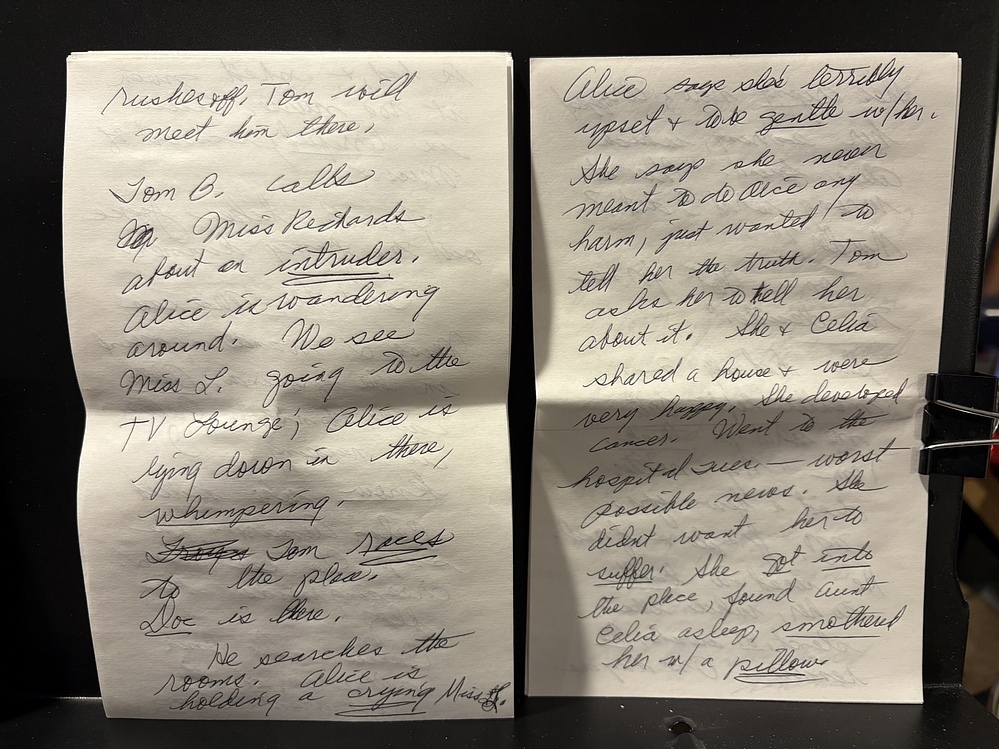 rushes off. Tom will
meet him there.
Tom B. calls
Miss Richards
about an intruder.
Alice is wandering
around. We see
Miss L. going to the
TV Lounge; Alice is
lying down in there,
whimpering.
Tom races
to the place.
Doc is there.
He searches the
rooms. Alice is
holding a crying Miss L.
Alice says she's terribly
upset & to be gentle w/her.
She says she never
meant to do Alice any
harm, just wanted to
tell her the truth. Tom
asks her to tell her
about it. She & Celia
shared a house & were
very happy. She developed
cancer. Went to the
hospital Tues. — worst
possible news. She
didnt want her to
suffer. She got into
the place, found Aunt
Celia asleep, smothered
her w/a pillow.